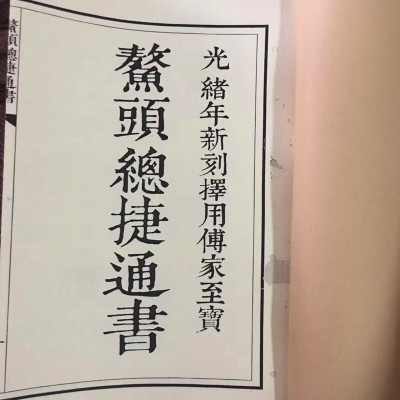 光緒年新刻擇用傅家至寶
鰲頭總捷通書
鰲頭總捷通書